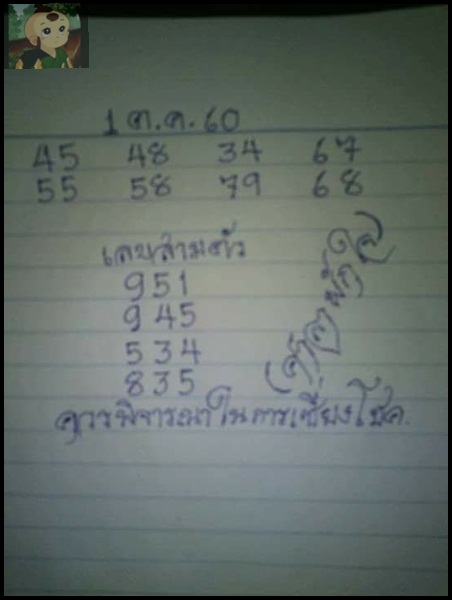 1 ต.ค. 60
45 48 34 67
55 58 79 68
เลขสามตัว
951
945
534
835
ควรพิจารณาในการเสี่ยงโชค.